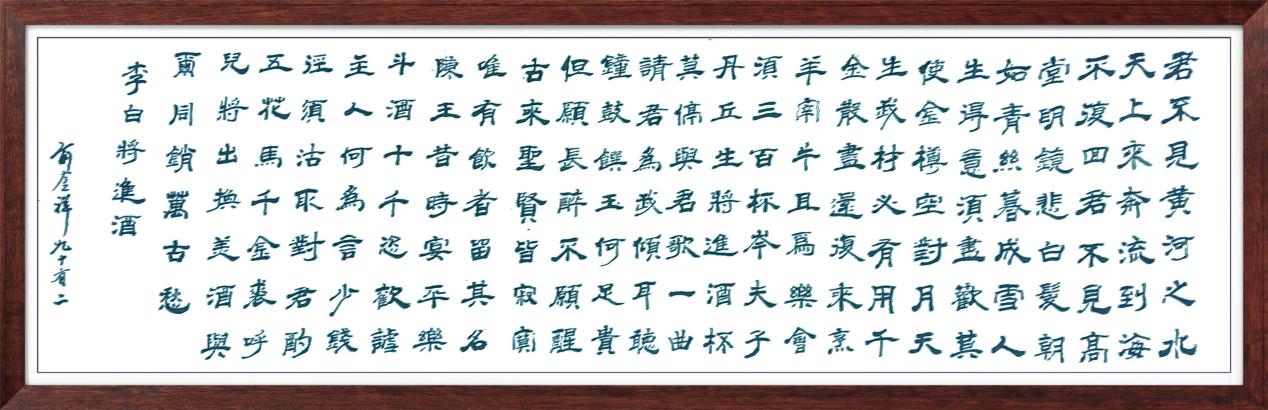 君不見黃河之水
天上來奔流到海
不復回君不見高
堂明鏡悲白髮朝
如青絲暮成雪人
生得意須盡歡莫
使金樽空對月天
生我材必有用千
金散盡還復來烹
羊宰牛且為樂會
須三百杯岑夫子
丹丘生將進酒杯
莫停與君歌一曲
請君為我傾耳聽
鐘鼓饌玉何足貴
但願長醉不願醒
古來聖賢皆寂寞
唯有飲者留其名
陳王昔時宴平樂
斗酒十千恣歡謔
主人何為言少錢
徑須沽取對君酌
五花馬千金裘呼
兒將出換美酒與
爾同銷萬古愁
李白將進酒
祥九十有二